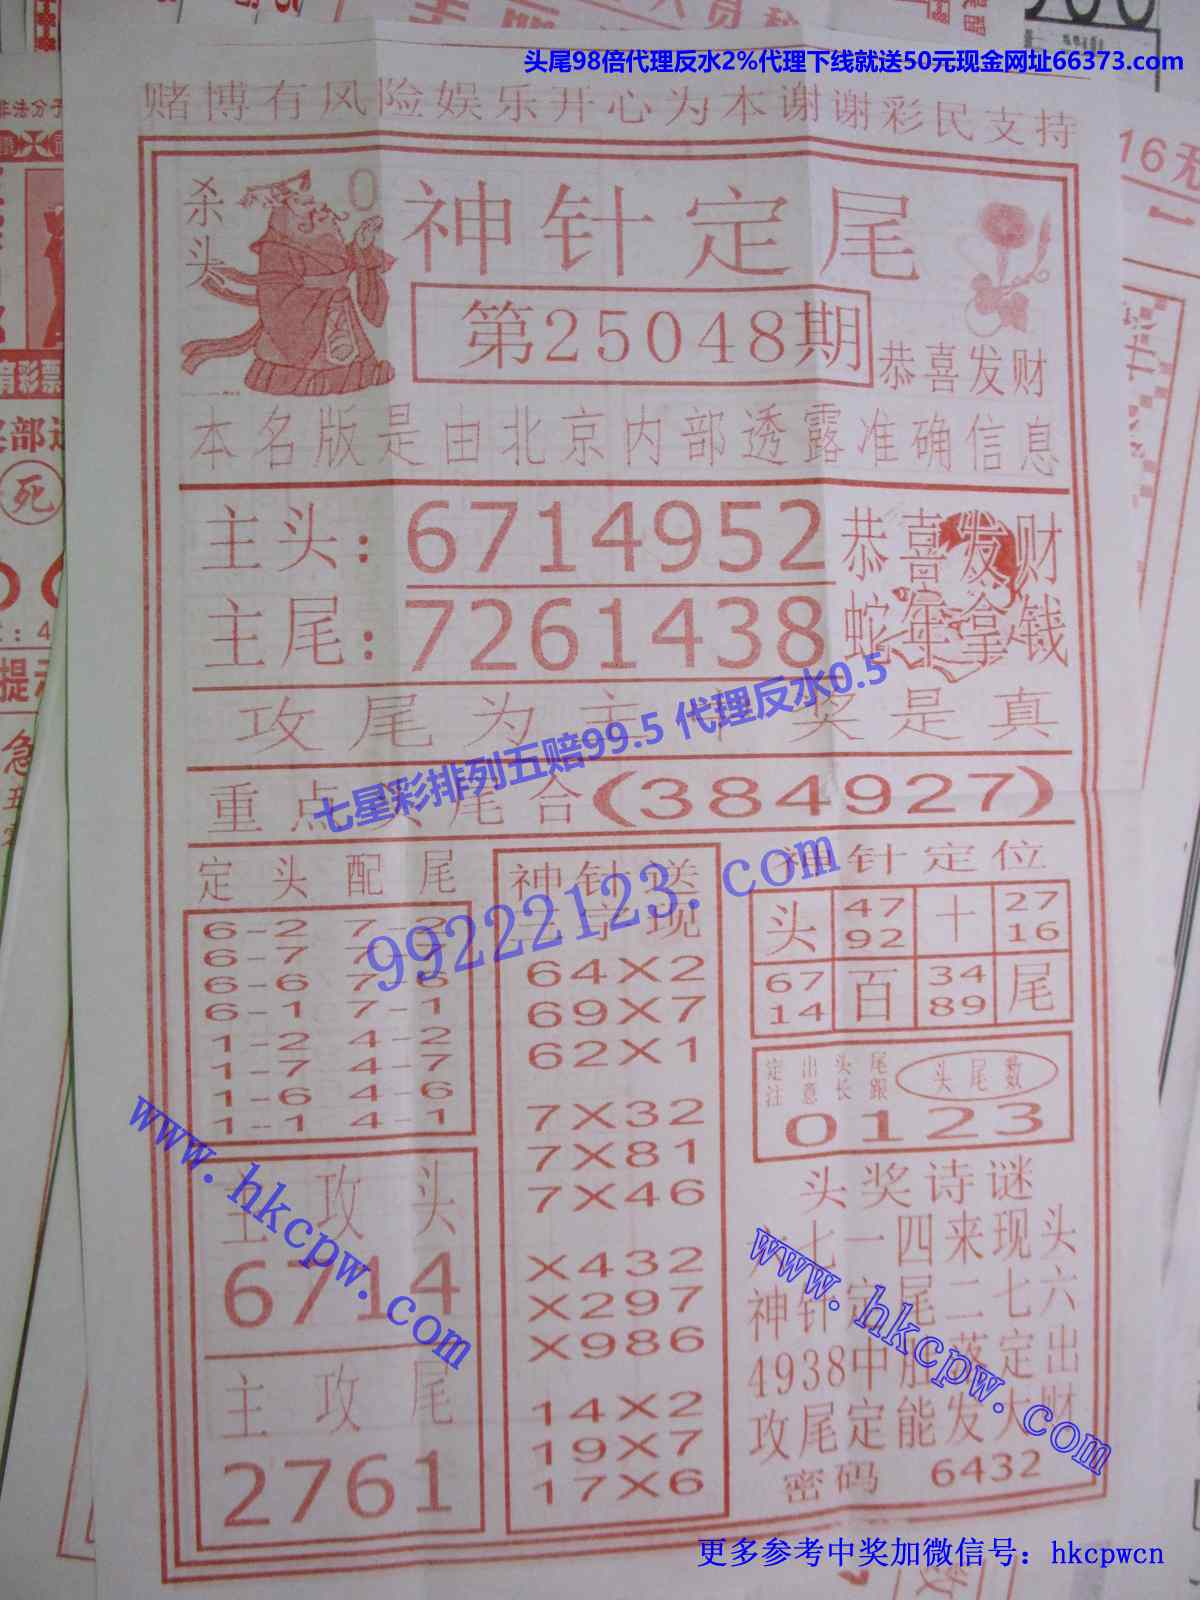 头尾98倍代理反水2%代理下线就送50元现金网址66373.com
赌博有风险娱乐开心为本谢谢彩民支持
杀头
0
神针定尾
第25048期
恭喜发财
本名版是由北京内部透露准确信息
主头:6714952
恭喜发财
主尾:7261438
蛇年拿钱
攻尾为主中奖是真
七星彩排列五赔99.5 代理反水0.5
重点头尾合(384927)
99222123.com
定头配尾
6-2 7-2
6-7 7-7
6-6 7-6
6-1 7-1
1-2 4-2
1-7 4-7
1-6 4-6
1-1 4-1
神针送
三字现
64X2
69X7
62X1
7X32
7X81
7X46
X432
X297
X986
14X2
19X7
17X6
神针定位
头 47 92 十 27 16
67 14 百 34 89 尾
定出头尾
注意长跟
头尾数
0123
主攻头
6714
主攻尾
2761
头奖诗谜
六七一四来现头
神针定尾二七六
4938中肚落定出
攻尾定能发大财
密码 6432
www.hkcpw.com
www.hkcpw.com
更多参考中奖加微信号：hkcpwcn
16无
死